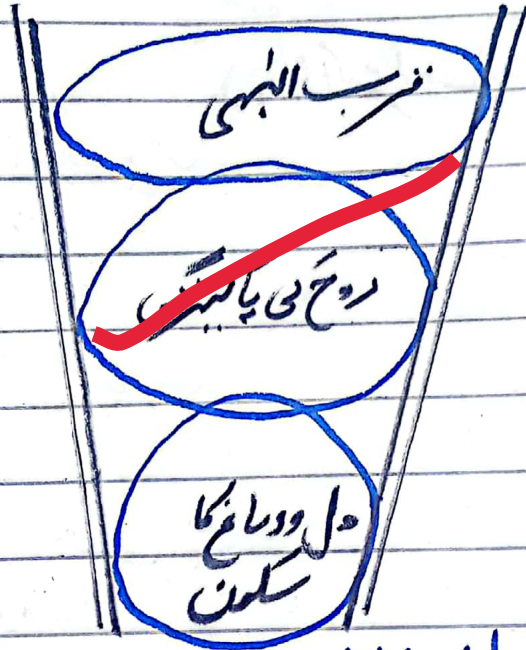 قرب الٰہی
روح کی پاکیزگی
دل ودماغ کا
سکون